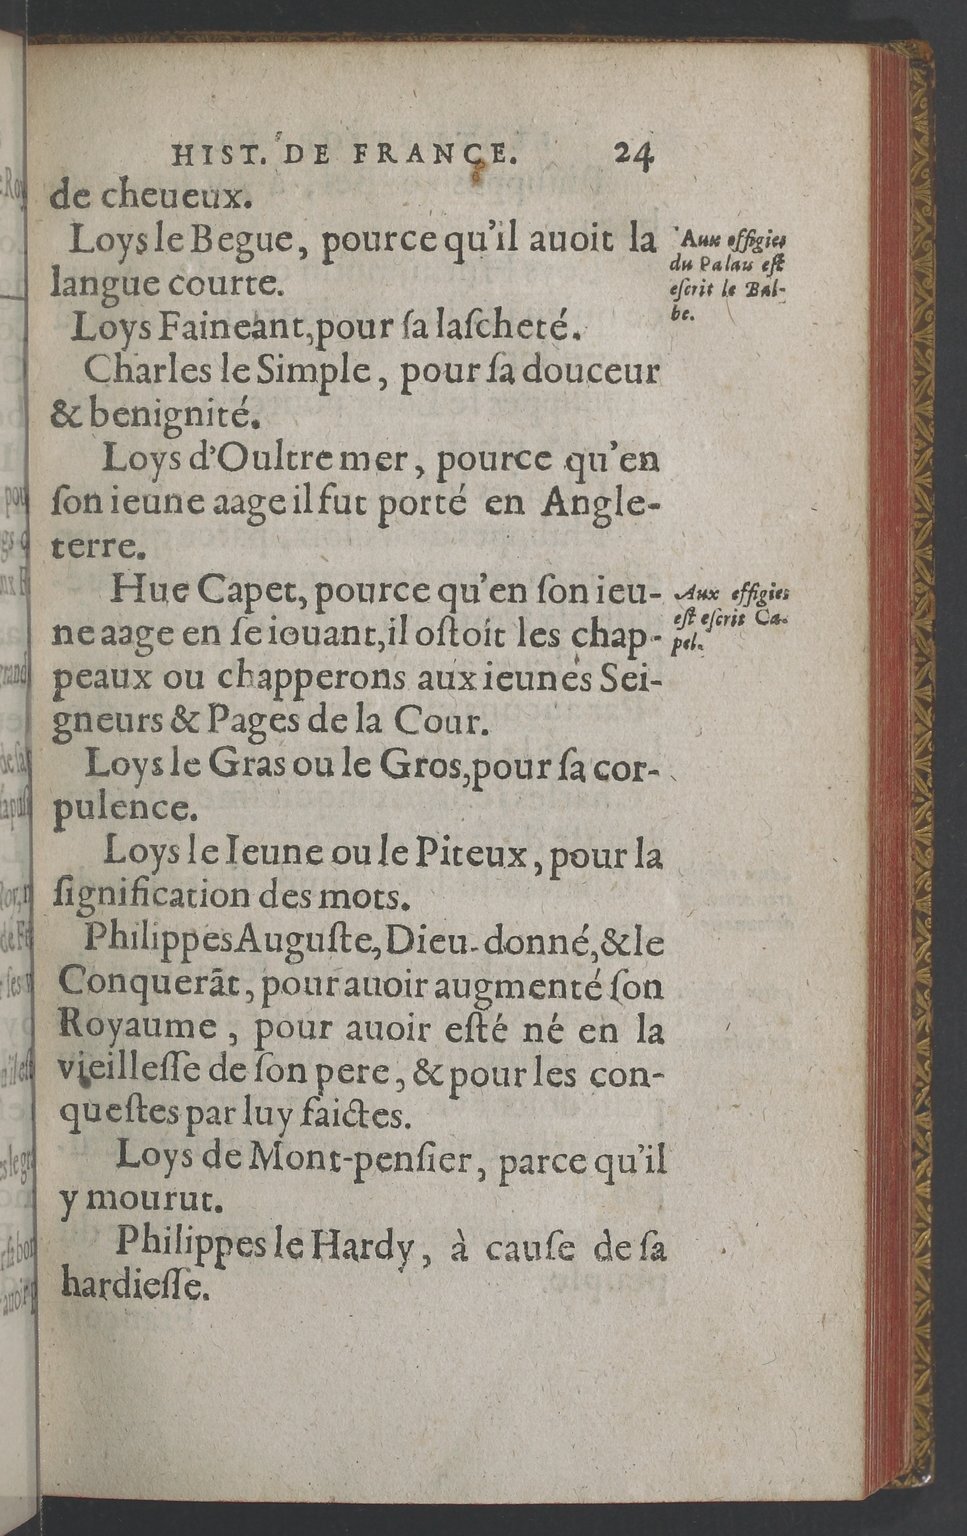 HIST. DE FRANCE. 24
de cheueux.
Loys le Begue, pource qu'il auoit la
langue courte.
Loys Faineant, pour ſa laſcheté.
Charles le Simple, pour ſa douceur
& benignité.
Loys d'Oultre mer, pource qu'en
ſon ieune aage il fut porté en Angle-
terre.
Hue Capet, pource qu'en ſon ieu-
ne aage en ſe iouant, il oſtoit les chap-
peaux ou chapperons aux ieunes Sei-
gneurs & Pages de la Cour.
Loys le Gras ou le Gros, pour ſa cor-
pulence.
Loys le Ieune ou le Piteux, pour la
ſignification des mots.
Philippes Auguſte, Dieu-donné, & le
Conquerāt, pour auoir augmenté ſon
Royaume, pour auoir eſté né en la
vieilleſſe de ſon pere, & pour les con-
queſtes par luy faictes.
Loys de Mont-penſier, parce qu'il
y mourut.
Philippes le Hardy, à cauſe de ſa
hardieſſe.
Aux effigies
du Palais eſt
eſcrit le Bal-
be.
Aux effigies
eſt eſcrit Ca-
pel.